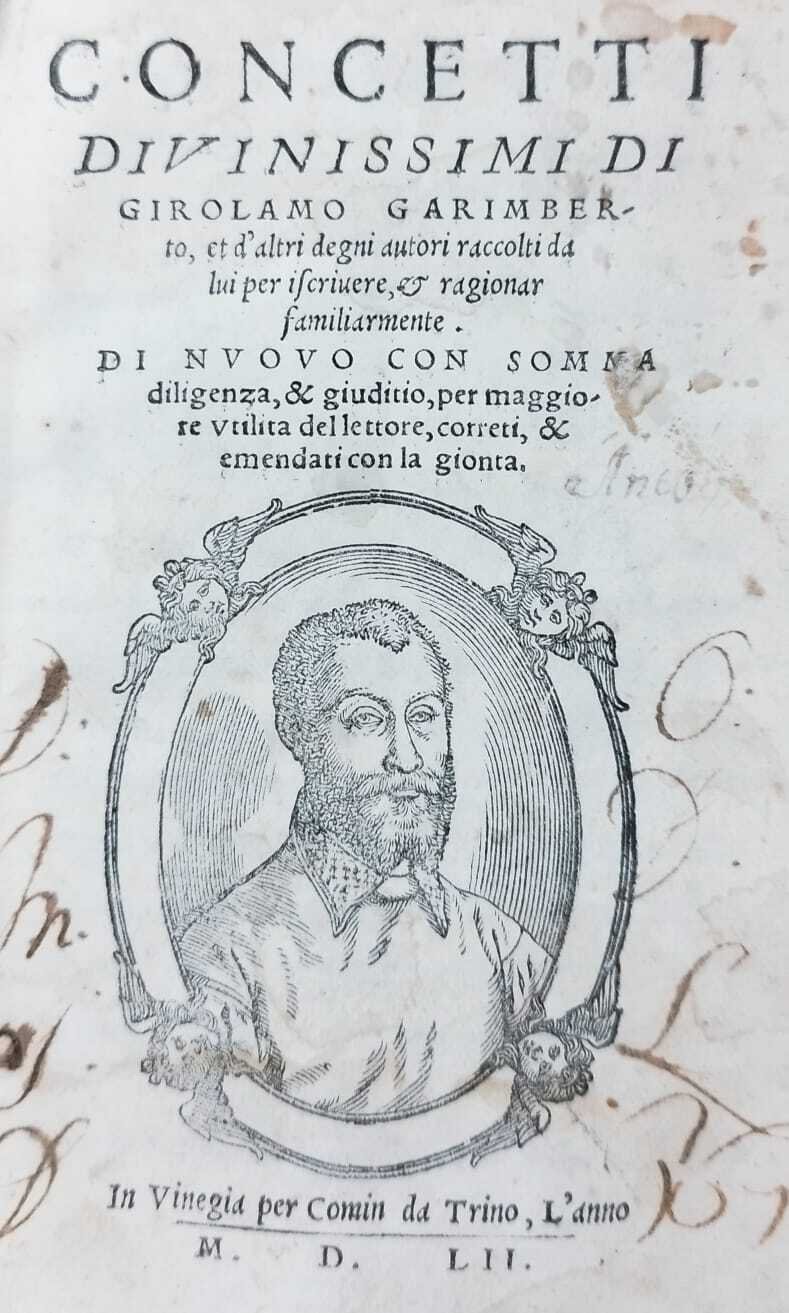 CONCETTI
DIVINISSIMI DI
GIROLAMO GARIMBER-
to, et d'altri degni autori raccolti da
lui per iſcriuere, & ragionar
familiarmente.
DI NVOVO CON SOMMA
diligenza, & giuditio, per maggio-
re vtilita del lettore, correti, &
emendati con la gionta.
In Vinegia per Comin da Trino, L'anno
M. D. LII.